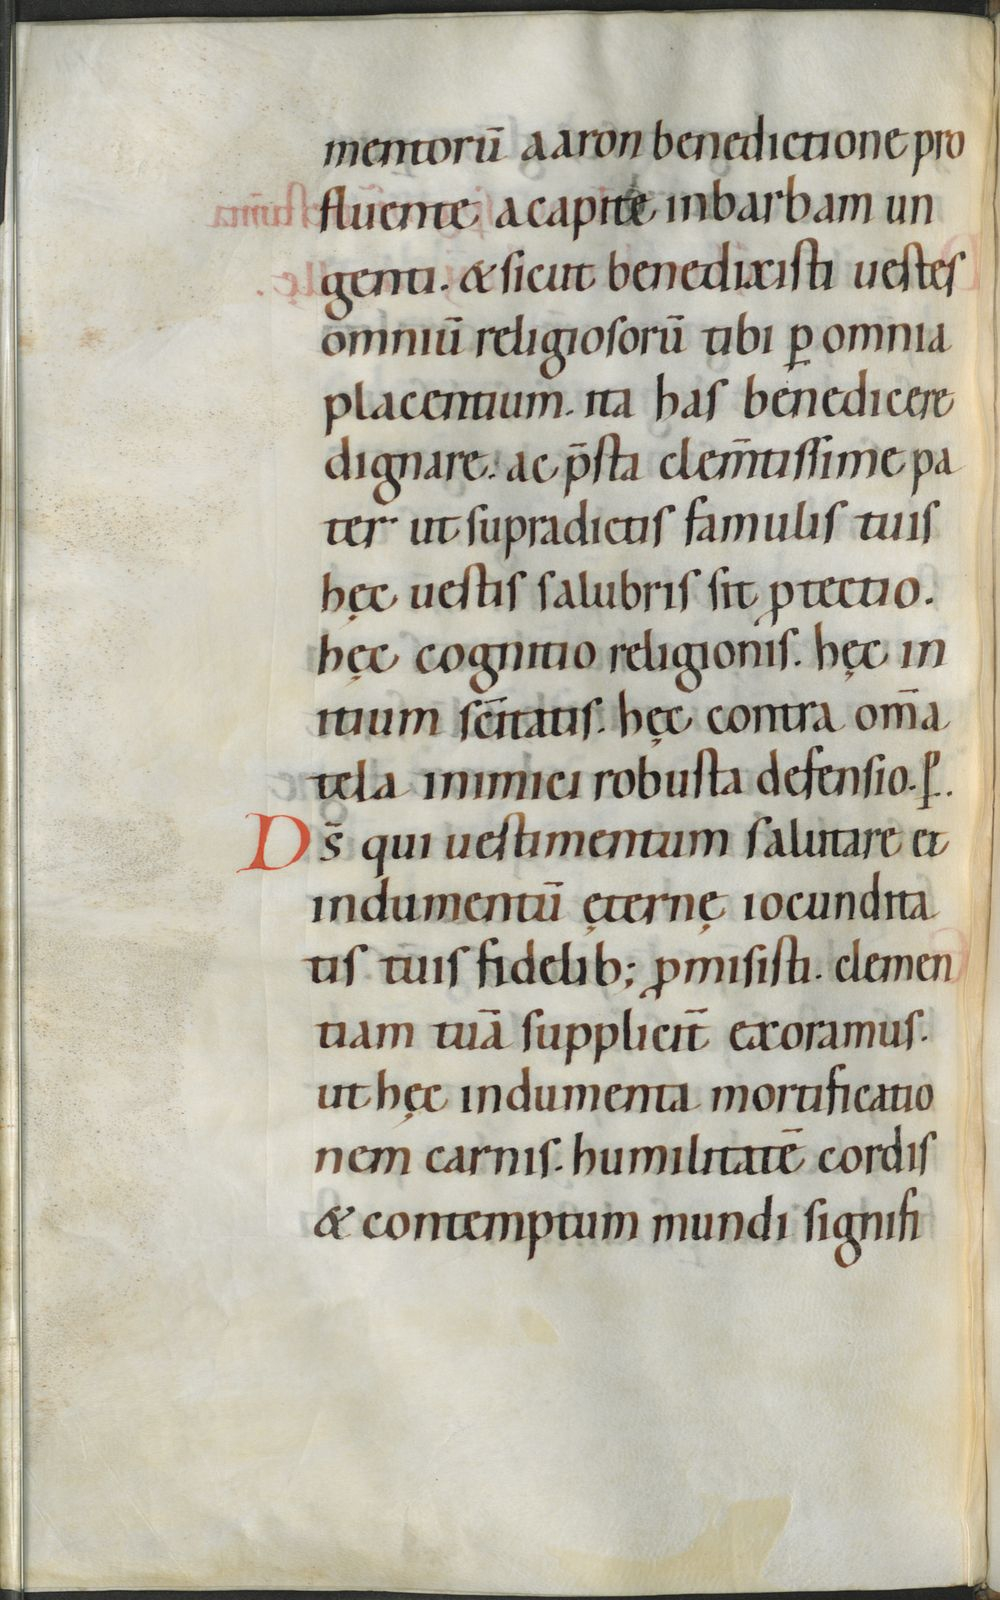 mentorū aaron benedictione pro
fluente a capite in barbam un
genti. & sicut benedixisti uestes
omniū religiosorū tibi ꝑ omnia
placentium. ita has benedicere
dignare. ac p̄sta clem̄tissime pa
ter ut supradictis famulis tuis
hęc uestis salubris sit ꝓtectio.
hęc cognitio religionis. hęc in
itium sc̄itatis. hęc contra om̄a
tela inimici robusta defensio. ꝑ.
Ds̄ qui uestimentum salutare et
indumentū ęternę iocundita
tis tuis fidelib; ꝓmisisti. clemen
tiam tuā supplicit̄ exoramus.
ut hęc indumenta mortificatio
nem carnis. humilitatē cordis
& contemptum mundi signifi